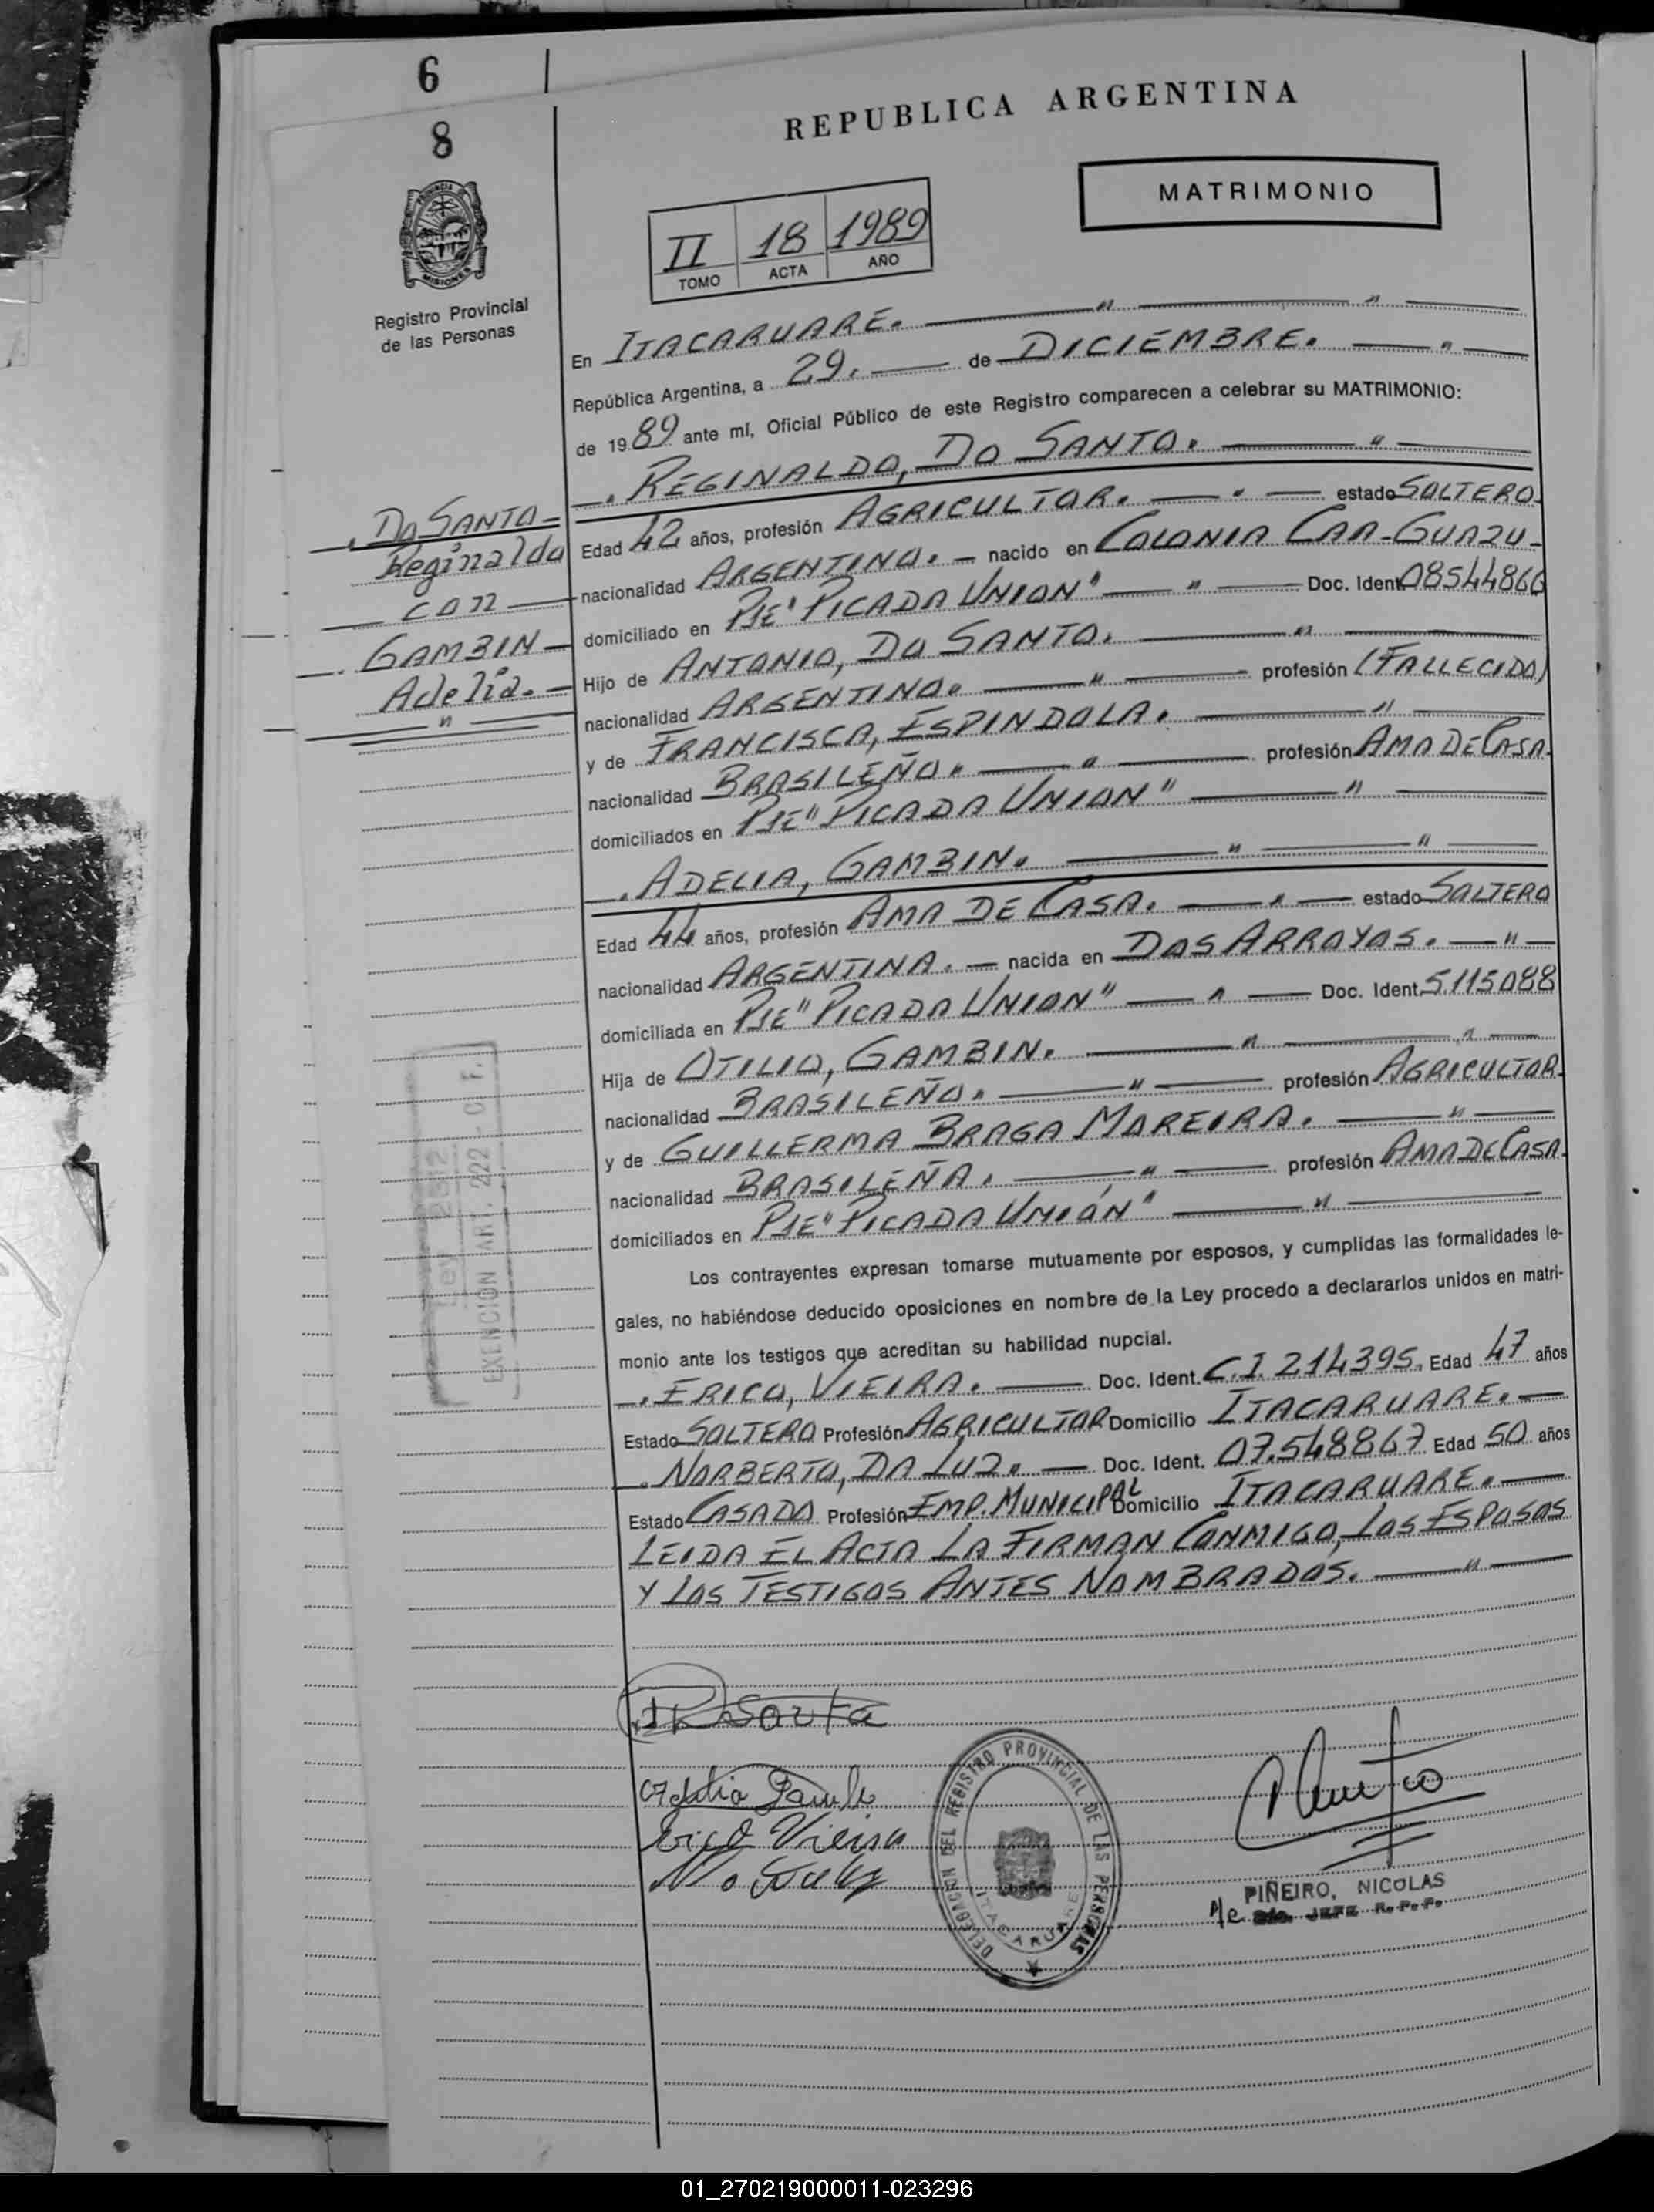 6
8
REPUBLICA ARGENTINA
MATRIMONIO
II 18 1989
TOMO ACTA AÑO
PROVINCIA DE
MISIONES
Registro Provincial
de las Personas
En ITACARUARE. — " — " —
República Argentina, a 29. — de DICIEMBRE. — " —
de 1989 ante mí, Oficial Público de este Registro comparecen a celebrar su MATRIMONIO:
. REGINALDO, DO SANTO. — " —
Edad 42 años, profesión AGRICULTOR. — " — estado SOLTERO.
nacionalidad ARGENTINO. — nacido en COLONIA CAA-GUAZU-
domiciliado en PJE "PICADA UNION" — " — Doc. Ident. 08544866
Hijo de ANTONIO, DO SANTO. — " —
nacionalidad ARGENTINO. — " — profesión (FALLECIDO)
y de FRANCISCA, ESPINDOLA. — " —
nacionalidad BRASILEÑO. — " — profesión AMA DE CASA.
domiciliados en PJE "PICADA UNION" — " —
. ADELIA, GAMBIN. — " — " —
Edad 44 años, profesión AMA DE CASA. — " — estado SOLTERO
nacionalidad ARGENTINA. — nacida en DOS ARROYOS. — " —
domiciliada en PJE "PICADA UNION" — " — Doc. Ident. 5.115088
Hija de OTILIO, GAMBIN. — " — " —
nacionalidad BRASILEÑO. — " — profesión AGRICULTOR.
y de GUILLERMA BRAGA MOREIRA. — " —
nacionalidad BRASILEÑA. — " — profesión AMA DE CASA.
domiciliados en PJE "PICADA UNIÓN" — " —
Los contrayentes expresan tomarse mutuamente por esposos, y cumplidas las formalidades le-
gales, no habiéndose deducido oposiciones en nombre de la Ley procedo a declararlos unidos en matri-
monio ante los testigos que acreditan su habilidad nupcial.
. ERICO, VIEIRA. — Doc. Ident. C.I. 214395. Edad 47 años
Estado SOLTERO Profesión AGRICULTOR Domicilio ITACARUARE. —
. NORBERTO, DA LUZ. — Doc. Ident. 07.548867 Edad 50 años
Estado CASADO Profesión EMP. MUNICIPAL Domicilio ITACARUARE. —
LEIDA EL ACTA LA FIRMAN CONMIGO, LOS ESPOSOS
Y LOS TESTIGOS ANTES NOMBRADOS. — " —
. DO SANTO —
Reginaldo
— con —
. GAMBIN —
Adelia. —
— " —
EXENCION ART. 222
Erico Vieira
DELEGACION DEL REGISTRO PROVINCIAL DE LAS PERSONAS
ITACARUARE
PIÑEIRO, NICOLAS
A/c JEFE R.P.P.
01_270219000011-023296